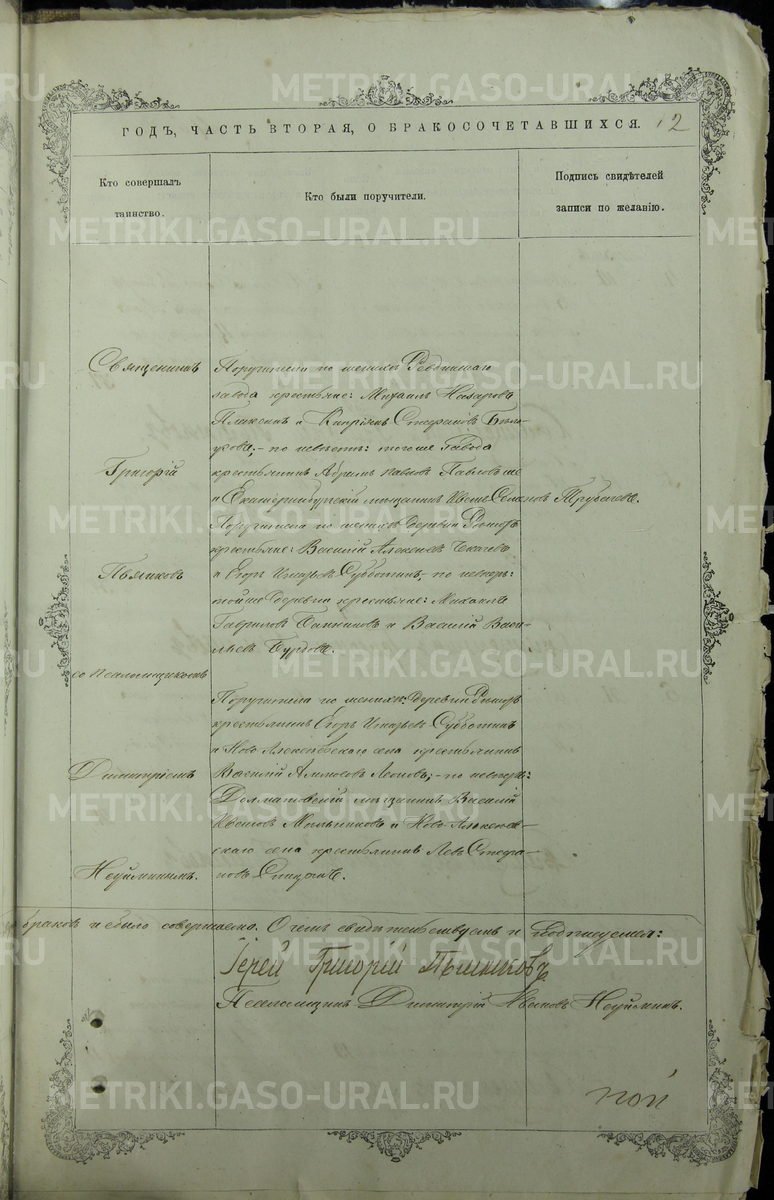 ГОДЪ, ЧАСТЬ ВТОРАЯ, О БРАКОСОЧЕТАВШИХСЯ. 2
Кто совершалъ таинство.
Кто были поручители.
Подпись свидѣтелей записи по желанію.
Священникъ
Григорій
со псаломщикомъ
Димитріемъ
Неуйминымъ.
Поручители по женихѣ Ревдинскаго
завода крестьяне: Михаилъ Назаровъ
и Кипріянъ Стефановъ
по невѣстѣ: тогоже завода
крестьянинъ Абрамъ Павловъ
и Екатеринбургскій мѣщанинъ Трубачевъ.
Поручители по женихѣ деревни
крестьяне: Василій Алексѣевъ
и Егоръ Субботинъ, по невѣстѣ:
той же деревни крестьяне: Михаилъ
Гавриловъ и Василій Васи-
льевъ Бурдовъ.
Поручители по женихѣ: деревни
крестьянинъ Егоръ Субботинъ
и Ново-Алексѣевскаго села крестьянинъ
Василій Леоновъ, по невѣстѣ:
Долматовскій мѣщанинъ Василій
Ивановъ Мельниковъ и Ново-Алексѣев-
скаго села крестьянинъ Левъ Стефа-
новъ
браковъ и было совершаемо. О чемъ свидѣтельствуемъ и подписуемся:
Іерей Григорій
Псаломщикъ Димитрій Ивановъ Неуйминъ.
METRIKI.GASO-URAL.RU